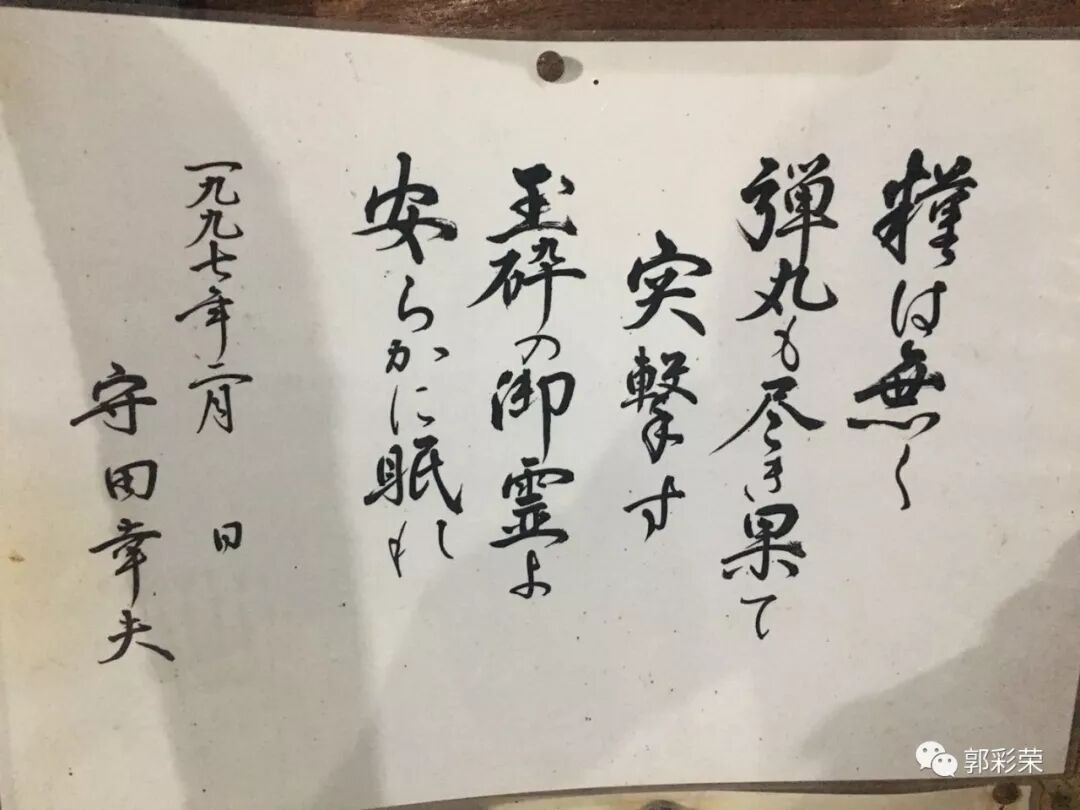 糧は無く
弾丸も尽き果て
突撃す
玉砕の御霊よ
安らかに眠れ
一九九七年二月　日
守田幸夫
郭彩荣